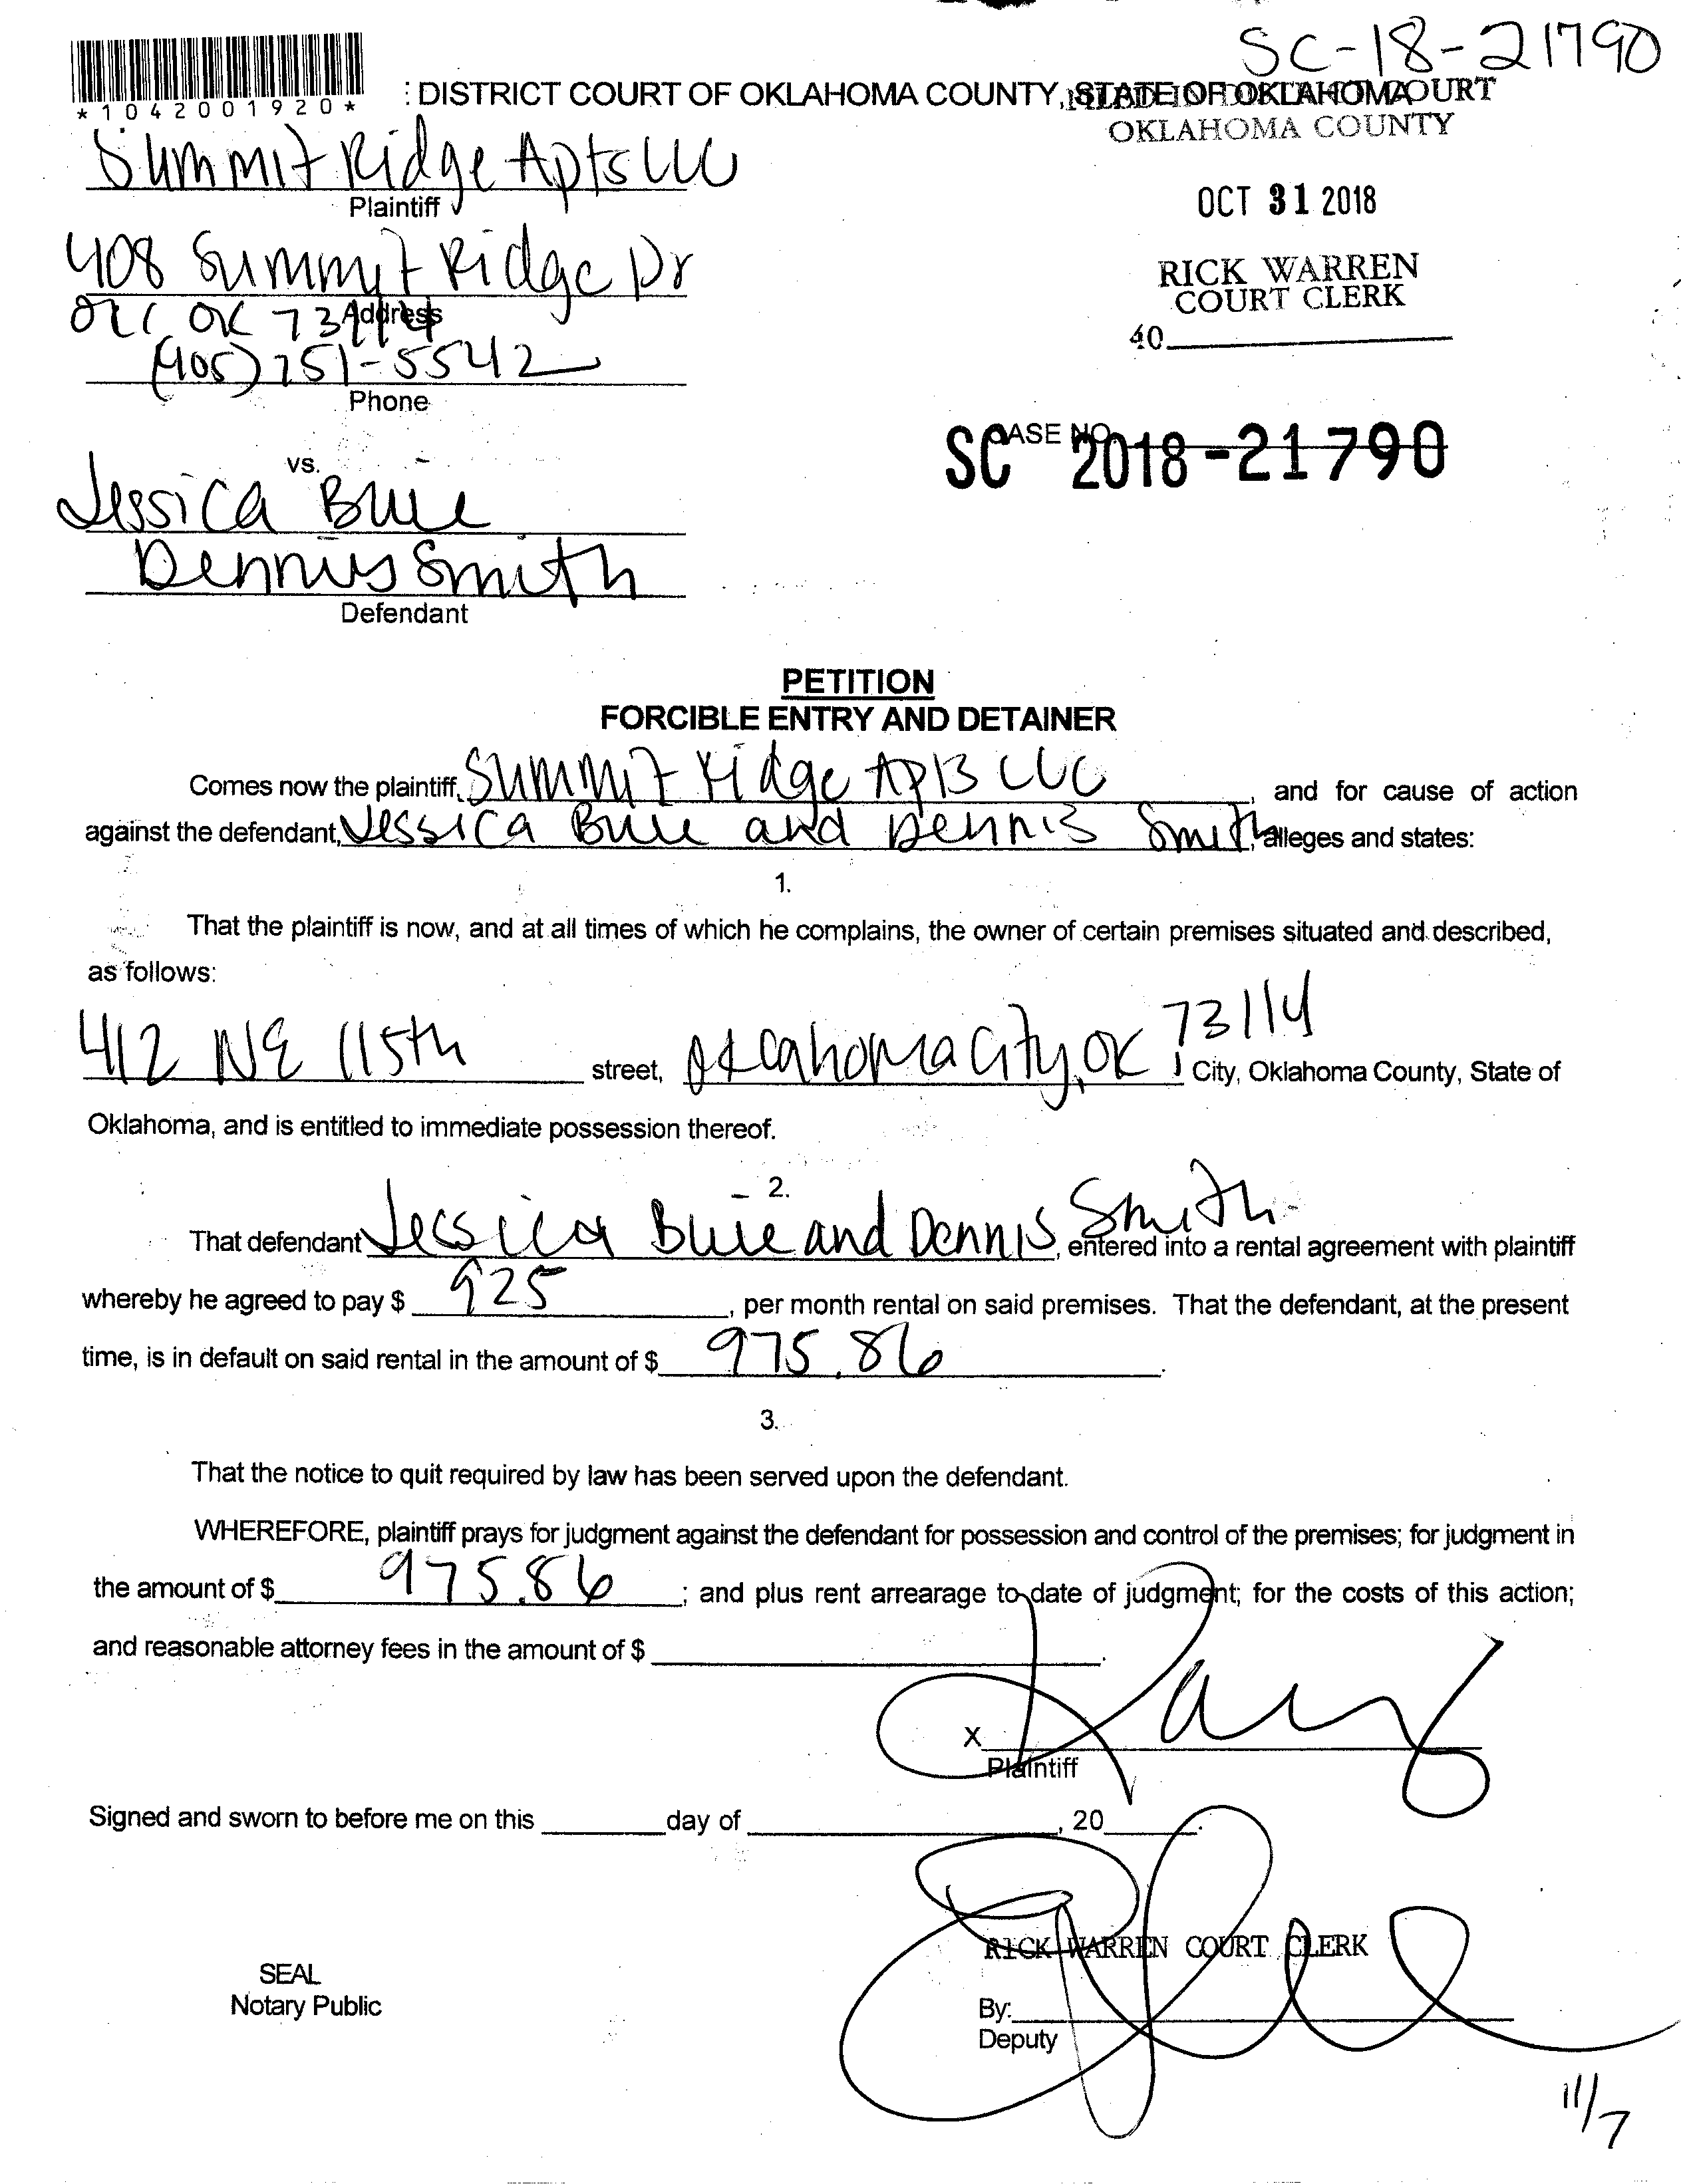 SC-18-21790
*1042001920*
: DISTRICT COURT OF OKLAHOMA COUNTY, STATE OF OKLAHOMA
FILED IN DISTRICT COURT
OKLAHOMA COUNTY
Summit Ridge Apts LLC
Plaintiff
OCT 31 2018
408 Summit Ridge Dr
Address
OKC OK 73114
RICK WARREN
COURT CLERK
40
(405) 751-5542
Phone
CASE NO.
SC 2018-21790
vs.
Jessica
Dennis Smith
Defendant
PETITION
FORCIBLE ENTRY AND DETAINER
Comes now the plaintiff, Summit Ridge Apts LLC, and for cause of action
against the defendant, Jessica and Dennis Smith, alleges and states:
1.
That the plaintiff is now, and at all times of which he complains, the owner of certain premises situated and described,
as follows:
412 NE 115th street, Oklahoma City, OK 73114, City, Oklahoma County, State of
Oklahoma, and is entitled to immediate possession thereof.
2.
That defendant Jessica and Dennis Smith, entered into a rental agreement with plaintiff
whereby he agreed to pay $ 925, per month rental on said premises. That the defendant, at the present
time, is in default on said rental in the amount of $ 975.86.
3.
That the notice to quit required by law has been served upon the defendant.
WHEREFORE, plaintiff prays for judgment against the defendant for possession and control of the premises; for judgment in
the amount of $ 975.86; and plus rent arrearage to date of judgment; for the costs of this action;
and reasonable attorney fees in the amount of $ .
X
Plaintiff
Signed and sworn to before me on this day of , 20 .
RICK WARREN COURT CLERK
SEAL
Notary Public
By:
Deputy
11/7